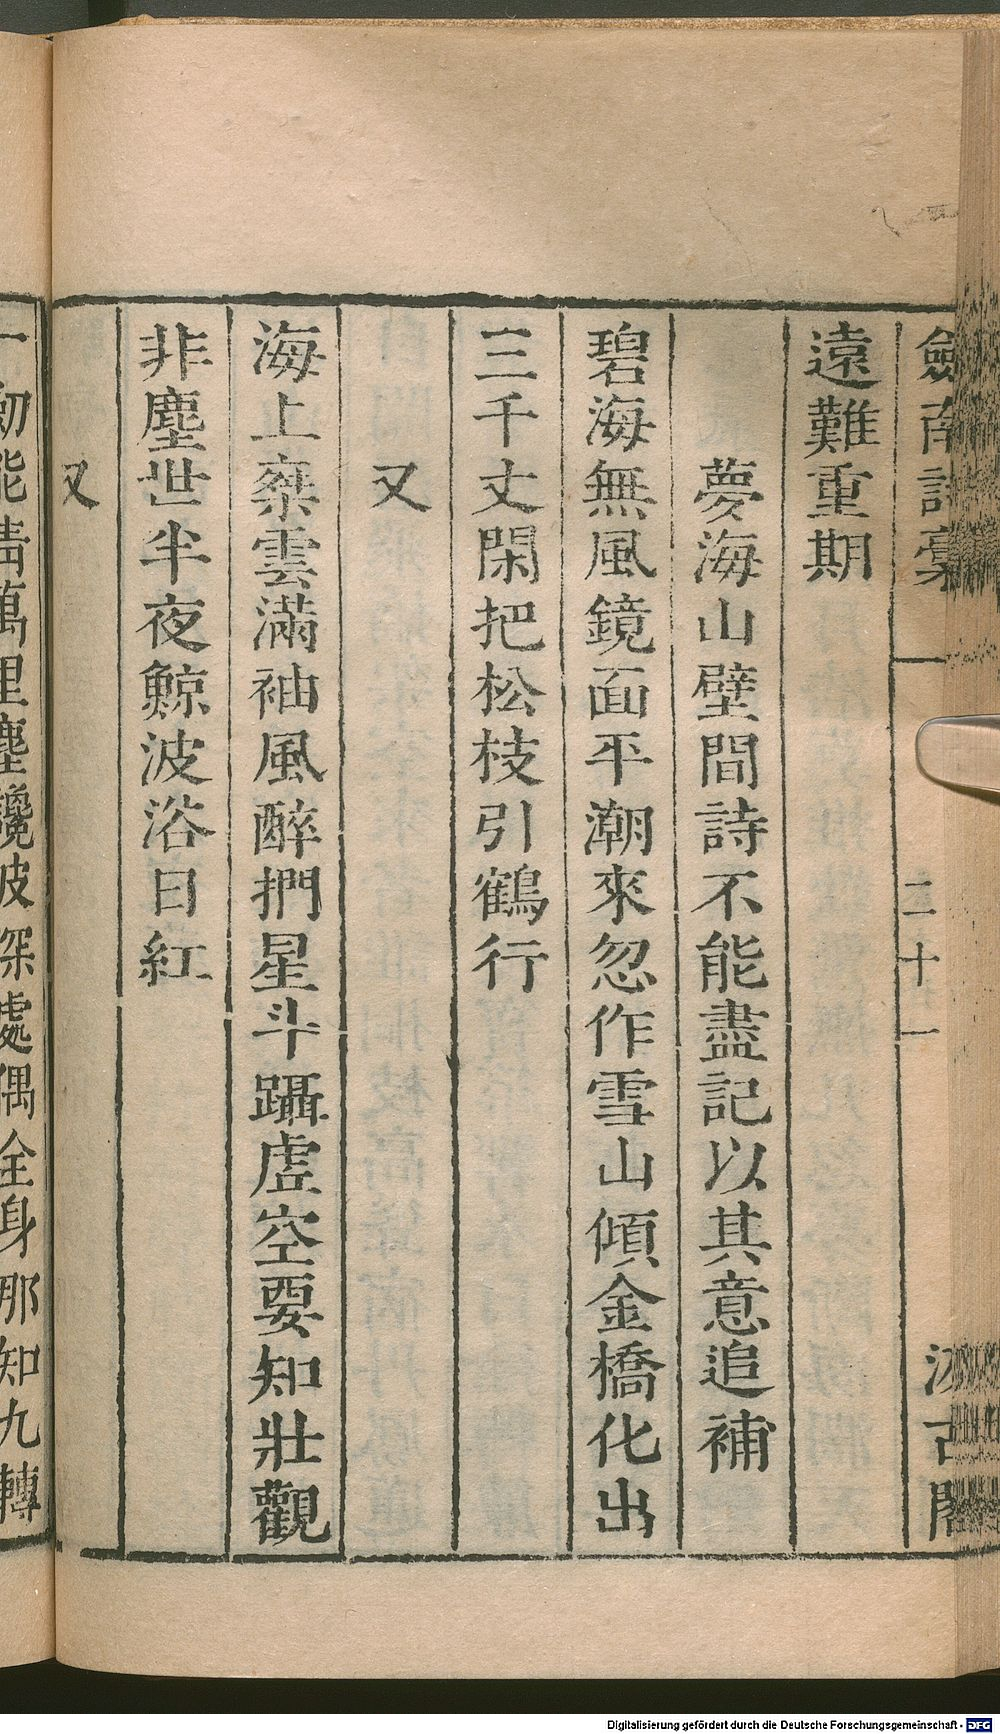 劒南詩藁
二十一
汲古閣
遠難重期
夢海山壁間詩不能盡記以其意追補
碧海無風鏡面平潮來忽作雪山傾金橋化出
三千丈閑把松枝引鶴行
又
海上桒雲滿袖風醉捫星斗躡虛空要知壯觀
非塵世半夜鯨波浴日紅
又
一劒能清萬里塵讒波深處偶全身那知九轉
Digitalisierung gefördert durch die Deutsche Forschungsgemeinschaft - DFG